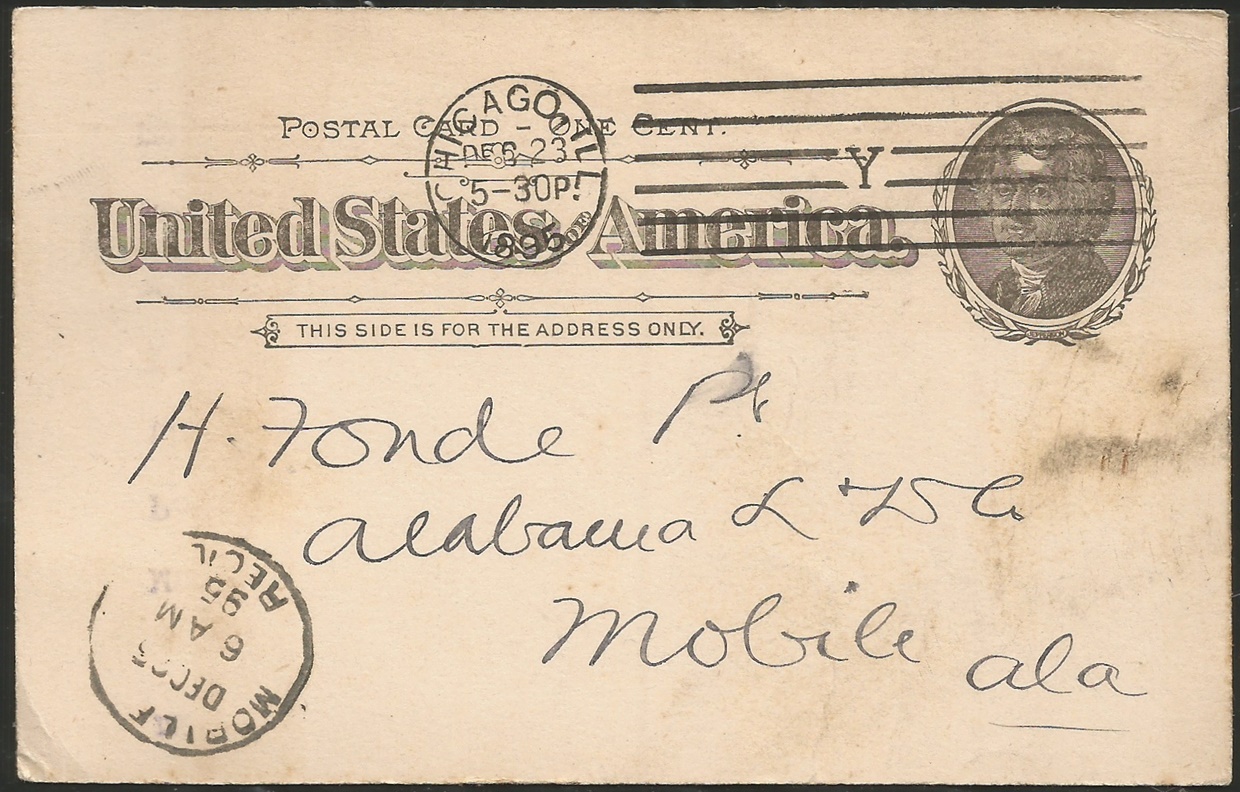 POSTAL CARD - ONE CENT.
CHICAGO, ILL.
DEC 23
5-30P.
1895
Y
United States of America.
THIS SIDE IS FOR THE ADDRESS ONLY.
H. Fonde Pt
Alabama L & D Co
Mobile Ala
MOBILE
DEC 25
6 AM
95
REC'D